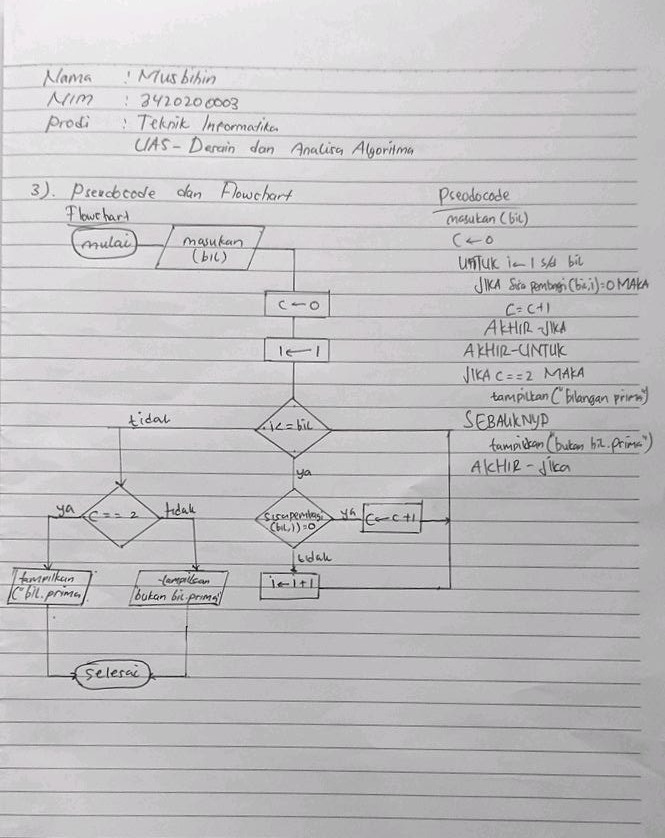 Nama : Musbihin
NIM : 3420200003
Prodi : Teknik Informatika
UAS - Desain dan Analisa Algoritma
3). Pseudocode dan Flowchart
Flowchart
mulai
masukan
(bil)
C ← 0
I ← 1
i <= bil
tidak
ya
C == 2
ya
tidak
sisapembagi
(bil,i)=0
ya
C ← C + 1
tidak
i ← i + 1
tampilkan
("bil.prima
tampilkan
bukan bil.prima"
selesai
Pseodocode
masukan (bil)
C ← 0
UNTUK i ← 1 s/d bil
JIKA Sisa pembagi (bil,i)=0 MAKA
C = C+1
AKHIR - JIKA
AKHIR - UNTUK
JIKA C == 2 MAKA
tampilkan ("bilangan prima")
SEBALIKNYA
tampilkan ("bukan bil. prima")
AKHIR - jika